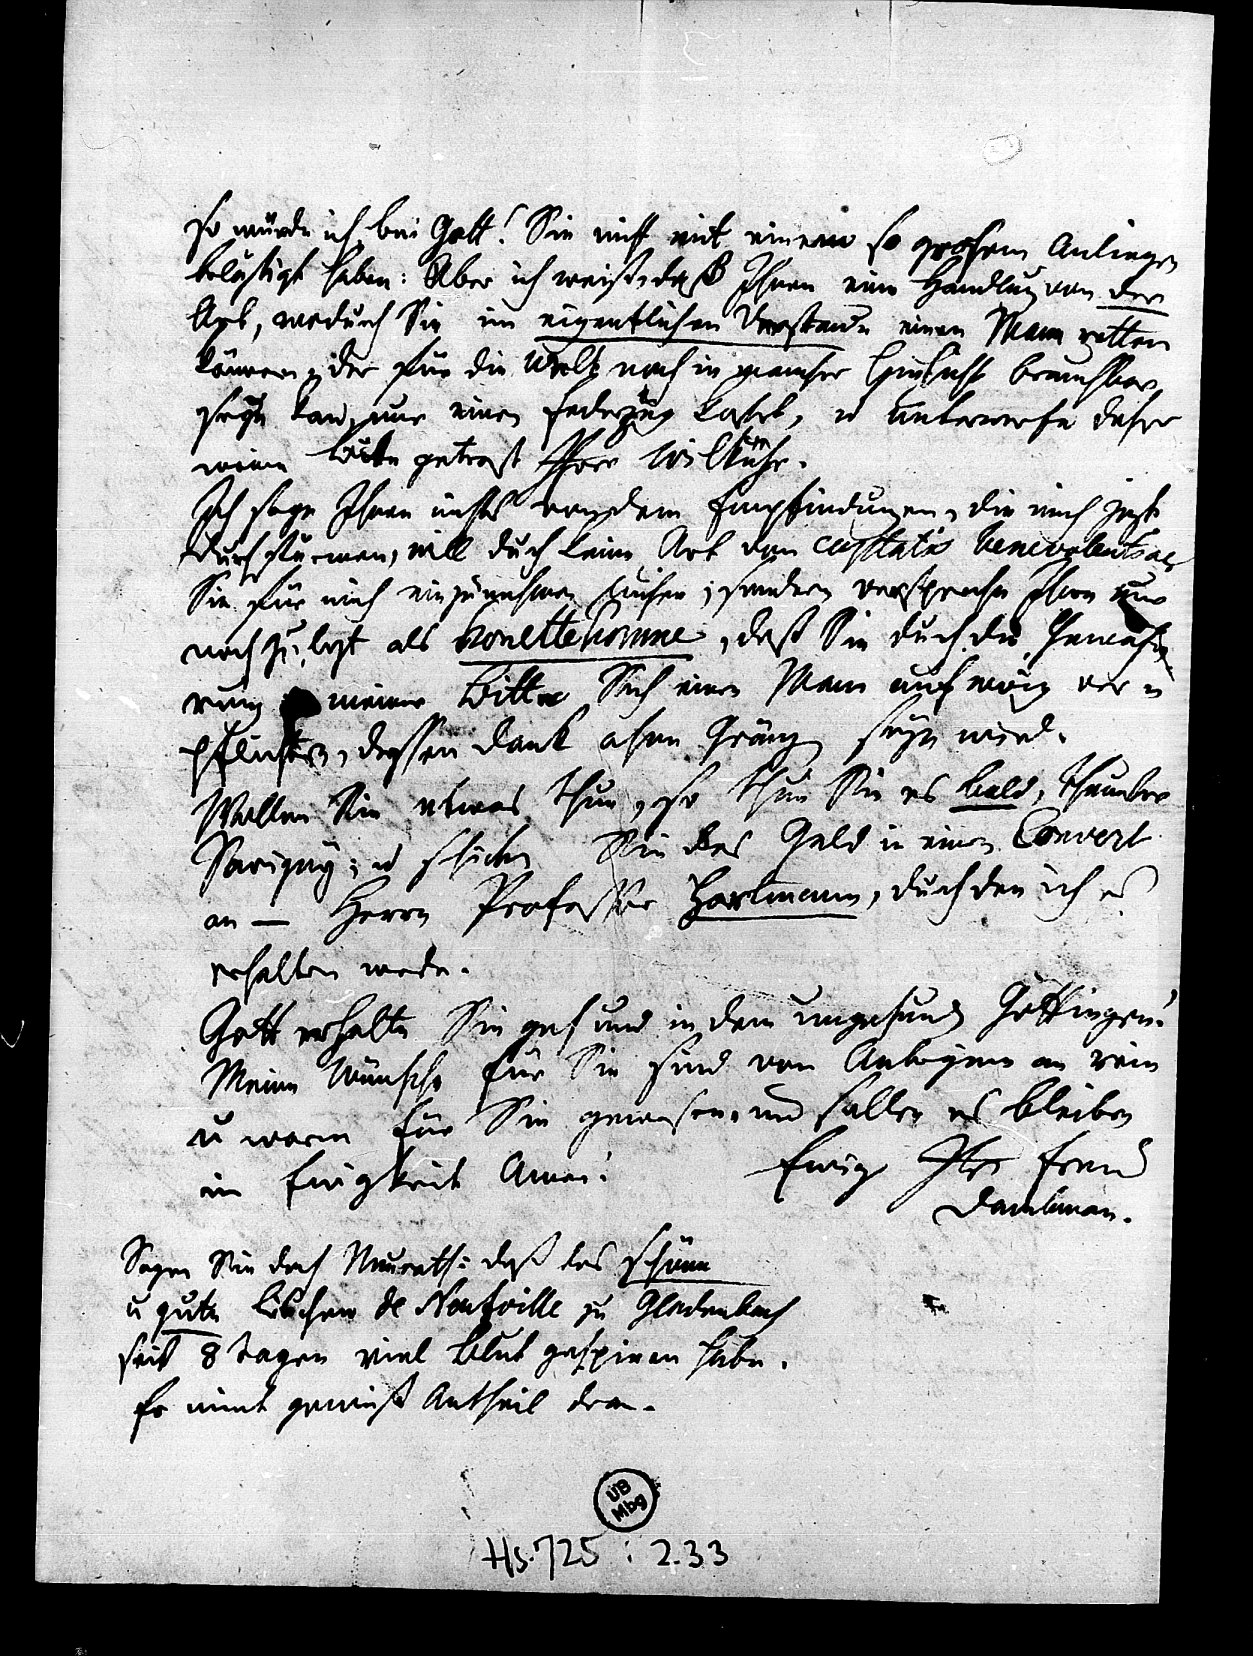 so würde ich bei Gott! Sie nicht mit einem so grosem Anliegen
belästigt haben: Aber ich weiß, daß Ihnen eine Handlung von der
Art, wodurch Sie im eigentlichen Verstande einen Mann retten
können, der für die Welt noch in mancher Hinsicht brauchbar
seyn kan, nur einen Federzug kostet, u unterwerfe daher
meine Bitte getrost Ihrer Willkühr.
Ich sage Ihnen nichts von den Empfindungen, die mich jezt
durchstürmen, will durch keine Art von captatio benevolentiae
Sie für mich einzunehmen suchen; sondern verspreche Ihnen nur
noch zulezt als honettehomme, daß Sie durch die Gewäh
rung meiner Bitte Sich einen Mann auf ewig ver
pflichten, dessen Dank ohne Gränze seyn wird.
Wollen Sie etwas thun, so thun Sie es bald, theurster
Savigny; u schicken Sie das Geld in einem Couvert
an — Herrn Professor Hartmann, durch den ich es
erhalten werde.
Gott erhalte Sie gesund in dem ungesunden Göttingen!
Meine Wünsche für Sie sind von Anbeginn an rein
u warm für Sie gewesen, und sollen es bleiben
in Ewigkeit Amen! Ewig Ihr Freund
Dambman.
Sagen Sie doch Neurath: daß das schöne
u gute de Neufville zu Gladenbach
seit 8 Tagen viel Blut gespieen habe.
Er nimt gewiß Antheil dran.
UB
Mbg
Hs. 725 : 233